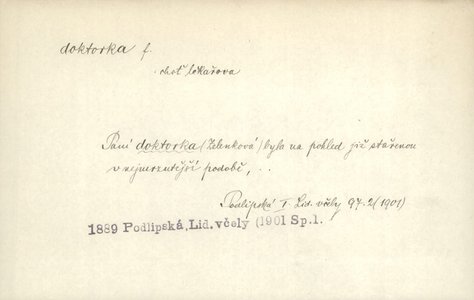 doktorka f.
choť lékařova
Paní doktorka (Zelenková) byla na pohled již stařenou
v nejmrzutější podobě, ..
Podlipská I. Lid. včely 97.2 (1901)
1889 Podlipská, Lid. včely (1901 Sp.1.